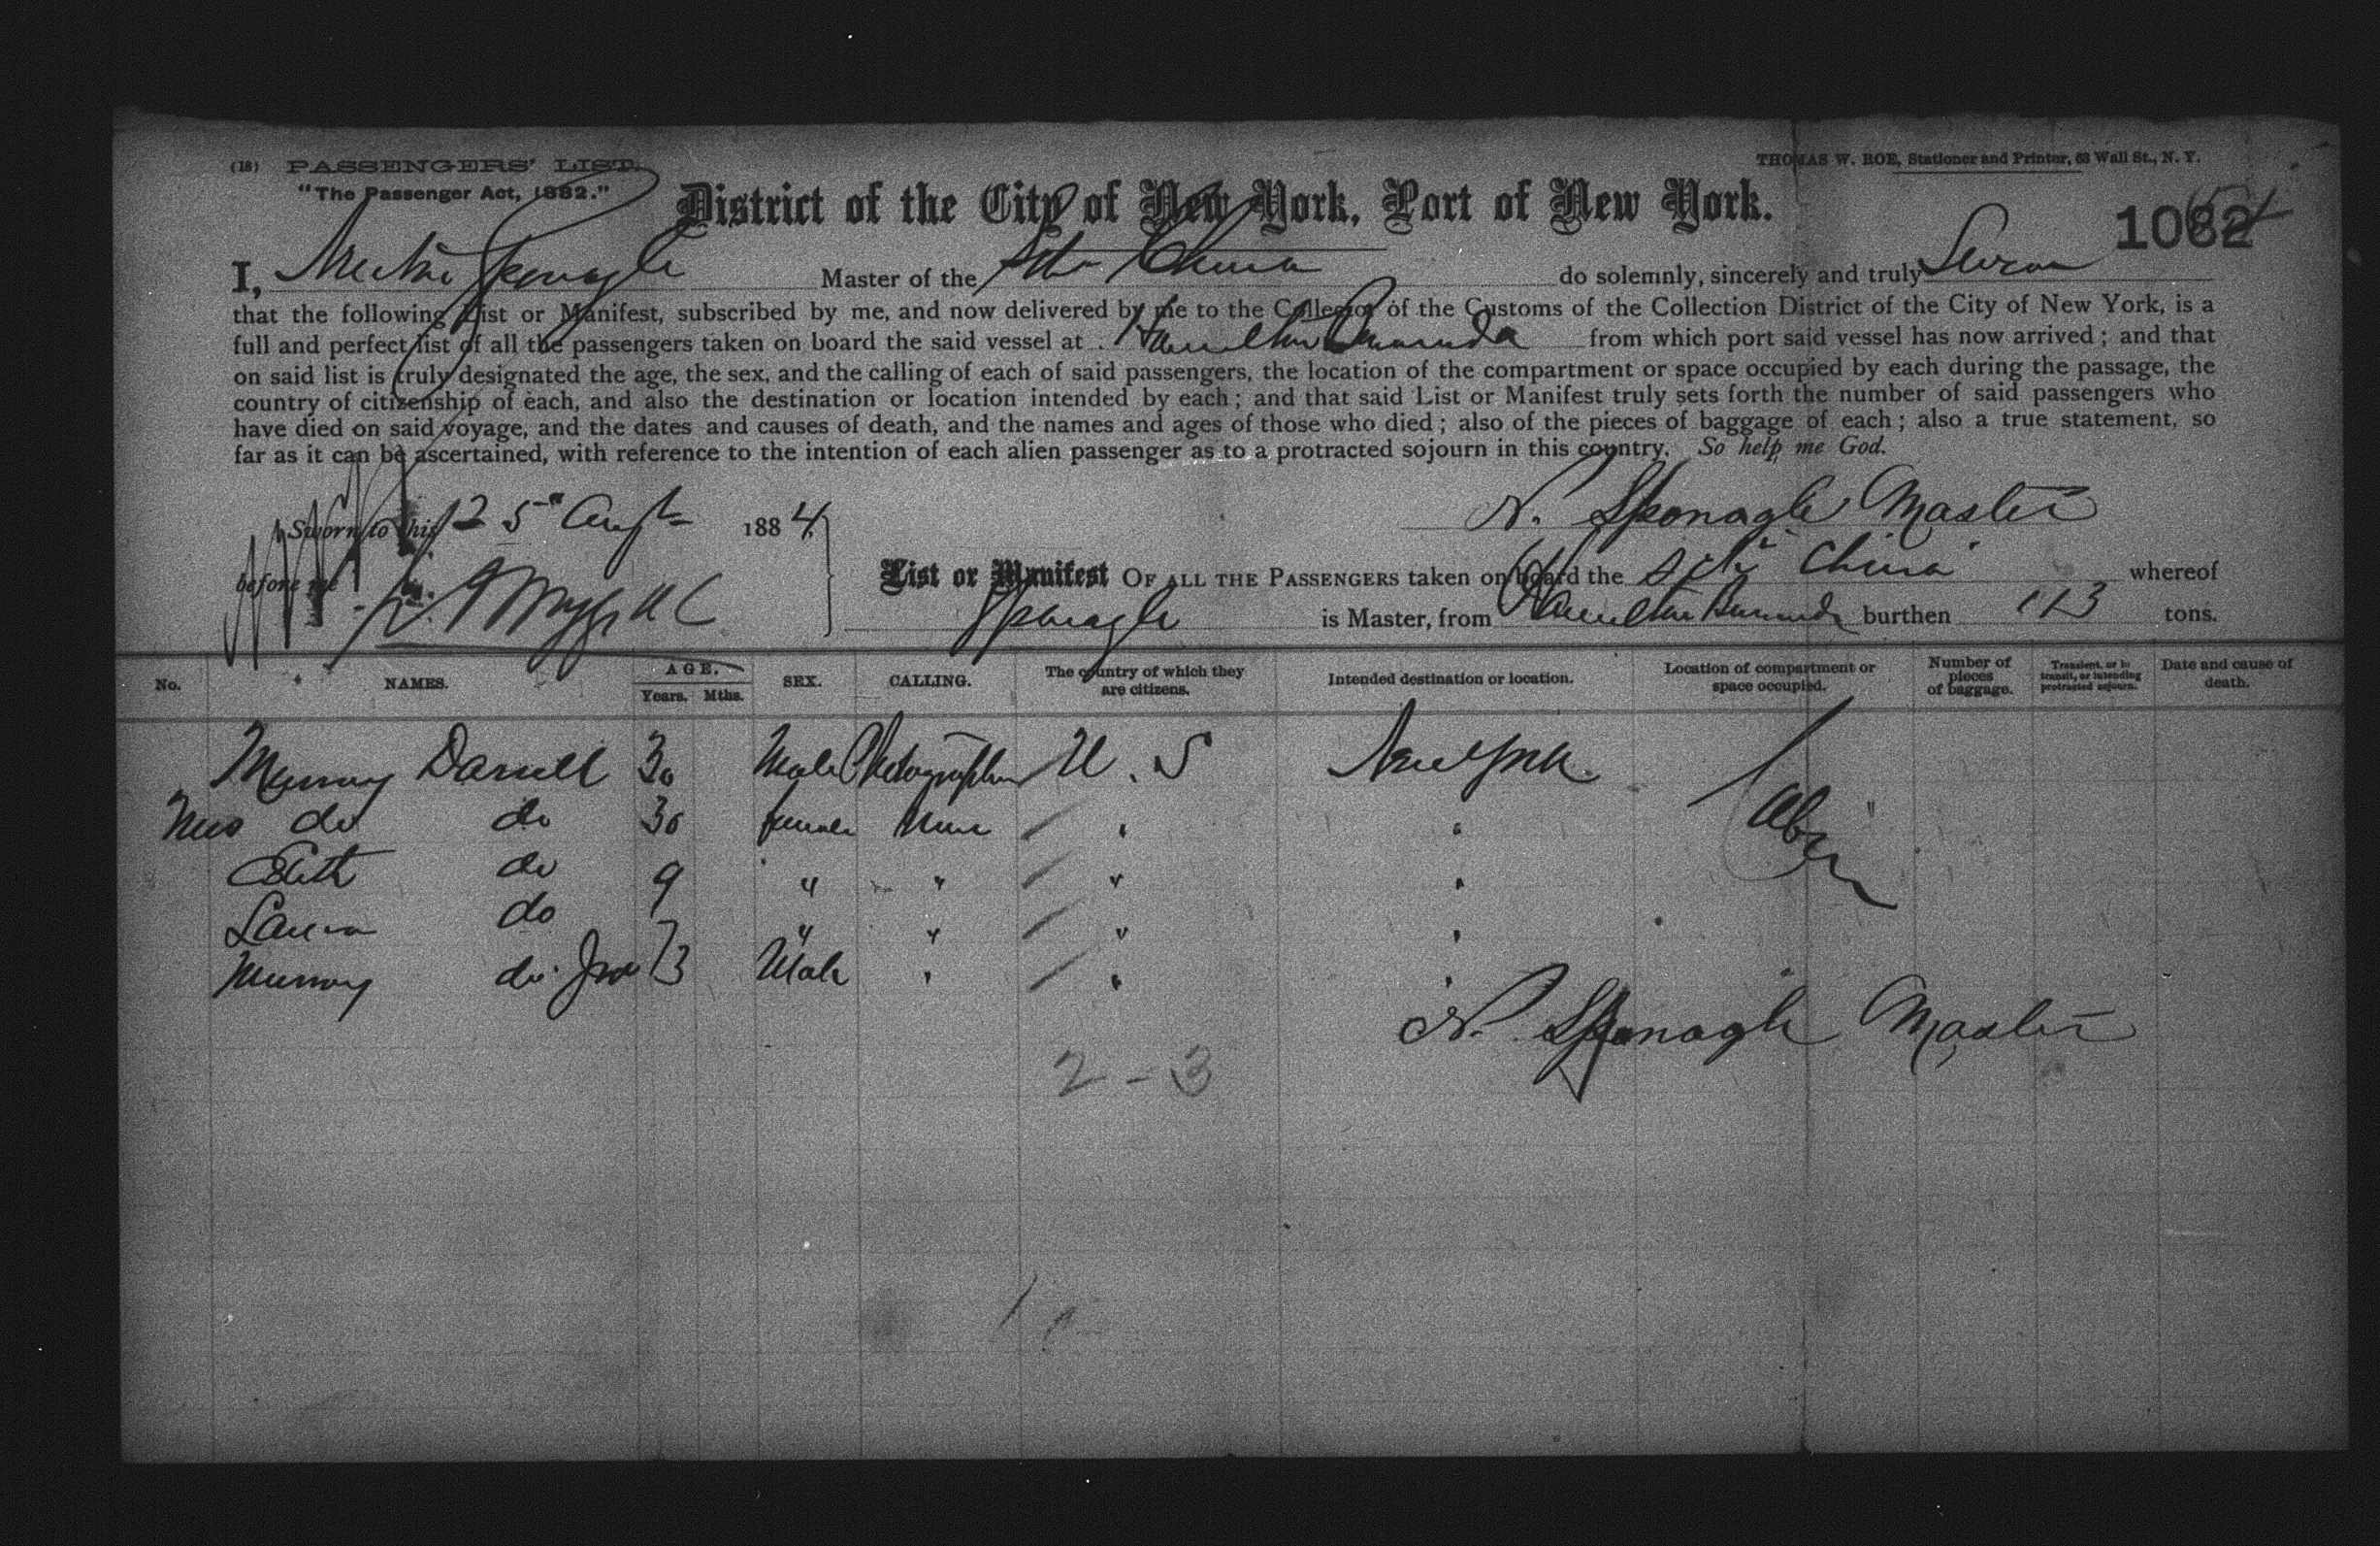 (18) PASSENGERS' LIST.
THOMAS W. ROE, Stationer and Printer, 63 Wall St., N. Y.
"The Passenger Act, 1882."
District of the City of New York, Port of New York.
1082
I, Sponagle Master of the Schr China do solemnly, sincerely and truly Swear
that the following List or Manifest, subscribed by me, and now delivered by me to the Collector of the Customs of the Collection District of the City of New York, is a
full and perfect list of all the passengers taken on board the said vessel at Hamilton Bermuda from which port said vessel has now arrived; and that
on said list is truly designated the age, the sex, and the calling of each of said passengers, the location of the compartment or space occupied by each during the passage, the
country of citizenship of each, and also the destination or location intended by each; and that said List or Manifest truly sets forth the number of said passengers who
have died on said voyage, and the dates and causes of death, and the names and ages of those who died; also of the pieces of baggage of each; also a true statement, so
far as it can be ascertained, with reference to the intention of each alien passenger as to a protracted sojourn in this country. So help me God.
Sworn to this 25" Augt 1884,
N. Sponagle Master
before me
List or Manifest OF ALL THE PASSENGERS taken on board the Schr China whereof
Sponagle is Master, from Hamilton Bermuda burthen 113 tons.
No. NAMES. AGE. Years. Mths. SEX. CALLING. The country of which they are citizens. Intended destination or location. Location of compartment or space occupied. Number of pieces of baggage. Transient, or in transit, or intending protracted sojourn. Date and cause of death.
Murray Darrell 30 Male Photographer U. S New York. Cabin
Mrs do do 30 female None " "
Edith do 9 " " " "
Laura do 7 " " " "
Murray do Jnr 3 Male " " "
N. Sponagle Master
2 - 3